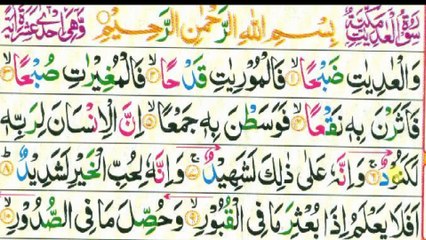 سورة العديت مدنية بسم الله الرحمن الرحيم وهي احدى عشرة اية
وَالْعٰدِيٰتِ ضَبْحًا ۙ فَالْمُوْرِيٰتِ قَدْحًا ۙ فَالْمُغِيْرٰتِ صُبْحًا ۙ
فَاَثَرْنَ بِهٖ نَقْعًا ۙ فَوَسَطْنَ بِهٖ جَمْعًا ۙ اِنَّ الْاِنْسَانَ لِرَبِّهٖ
لَكَنُوْدٌ ۚ وَاِنَّهٗ عَلٰى ذٰلِكَ لَشَهِيْدٌ ۚ وَاِنَّهٗ لِحُبِّ الْخَيْرِ لَشَدِيْدٌ ؕ
اَفَلَا يَعْلَمُ اِذَا بُعْثِرَ مَا فِى الْقُبُوْرِ ۙ وَحُصِّلَ مَا فِى الصُّدُوْرِ ۙ